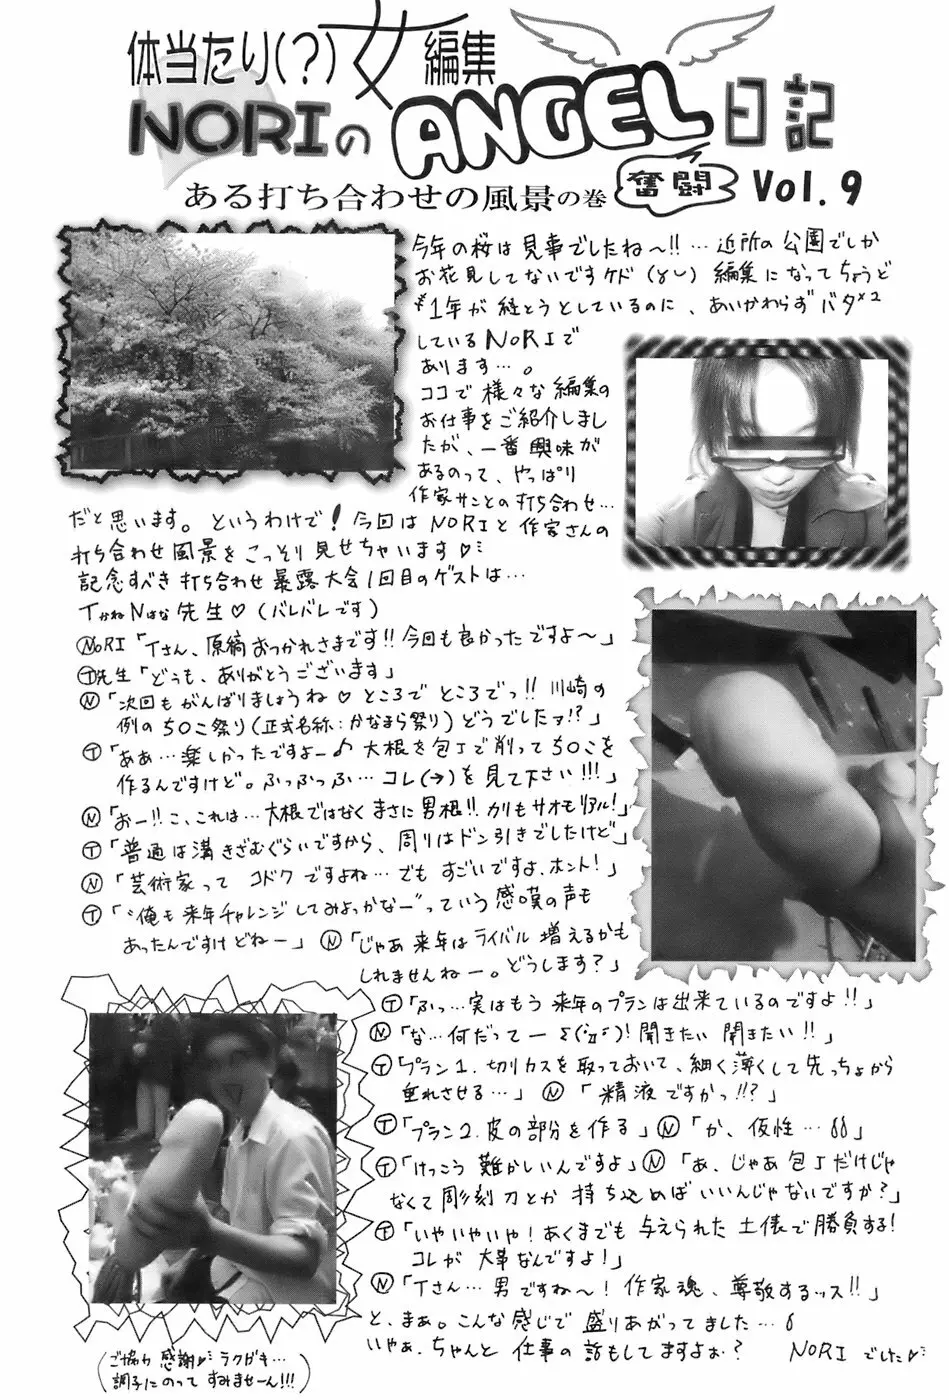 体当たり(?)女編集
NORIのANGEL日記
ある打ち合わせの風景の巻 奮闘 Vol.9
今年の桜は見事でしたね〜!!…近所の公園でしか
お花見してないですケド 編集になってちょうど
1年が経とうとしているのに、あいかわらずバタ×2
しているNORIで
あります…。
ココで様々な編集の
お仕事をご紹介しまし
たが、一番興味が
あるのって、やっぱり
作家サンとの打ち合わせ…
だと思います。というわけで!今回はNORIと作家さんの
打ち合わせ風景をこっそり見せちゃいます♡
記念すべき打ち合わせ暴露大会1回目のゲストは…
TかねNはな先生♡(バレバレです)
NORI「Tさん、原稿おつかれさまです!!今回も良かったですよ〜」
T先生「どうも、ありがとうございます」
N「次回もがんばりましょうね♡ところでところでっ!!川崎の
例のちOこ祭り(正式名称:かなまら祭り)どうでしたァ!?」
T「ああ…楽しかったですよー♪大根を包丁で削ってちOこを
作るんですけど。ふっふっふ…コレ(→)を見て下さい!!!」
N「おー!!こ、これは…大根ではなくまさに男根!!カリもサオもリアル!」
T「普通は溝きざむぐらいですから、周りはドン引きでしたけど」
N「芸術家ってコドクですよね…でもすごいですよ、ホント!」
T「"俺も来年チャレンジしてみよっかなー"っていう感嘆の声も
あったんですけどねー」N「じゃあ来年はライバル増えるかも
しれませんねー。どうします?」
T「ふっ…実はもう来年のプランは出来ているのですよ!!」
N「な…何だってー Σ(゚Д゚)!聞きたい聞きたい!!」
T「プラン1.切りカスを取っておいて、細く薄くして先っちょから
垂れさせる…」N「精液ですかっ!!?」
T「プラン2.皮の部分を作る」N「か、仮性…」
T「けっこう難かしいんですよ」N「あ、じゃあ包丁だけじゃ
なくて彫刻刀とか持ち込めばいいんじゃないですか?」
T「いやいやいや!あくまでも与えられた土俵で勝負する!
コレが大事なんですよ!」
N「Tさん…男ですね〜!作家魂、尊敬するッス!!」
と、まぁ。こんな感じで盛りあがってました…
いやぁ、ちゃんと仕事の話もしてますよぉ? NORIでした♡
(ご協力感謝♡ラクガキ…
調子にのってすみませーん!!!)